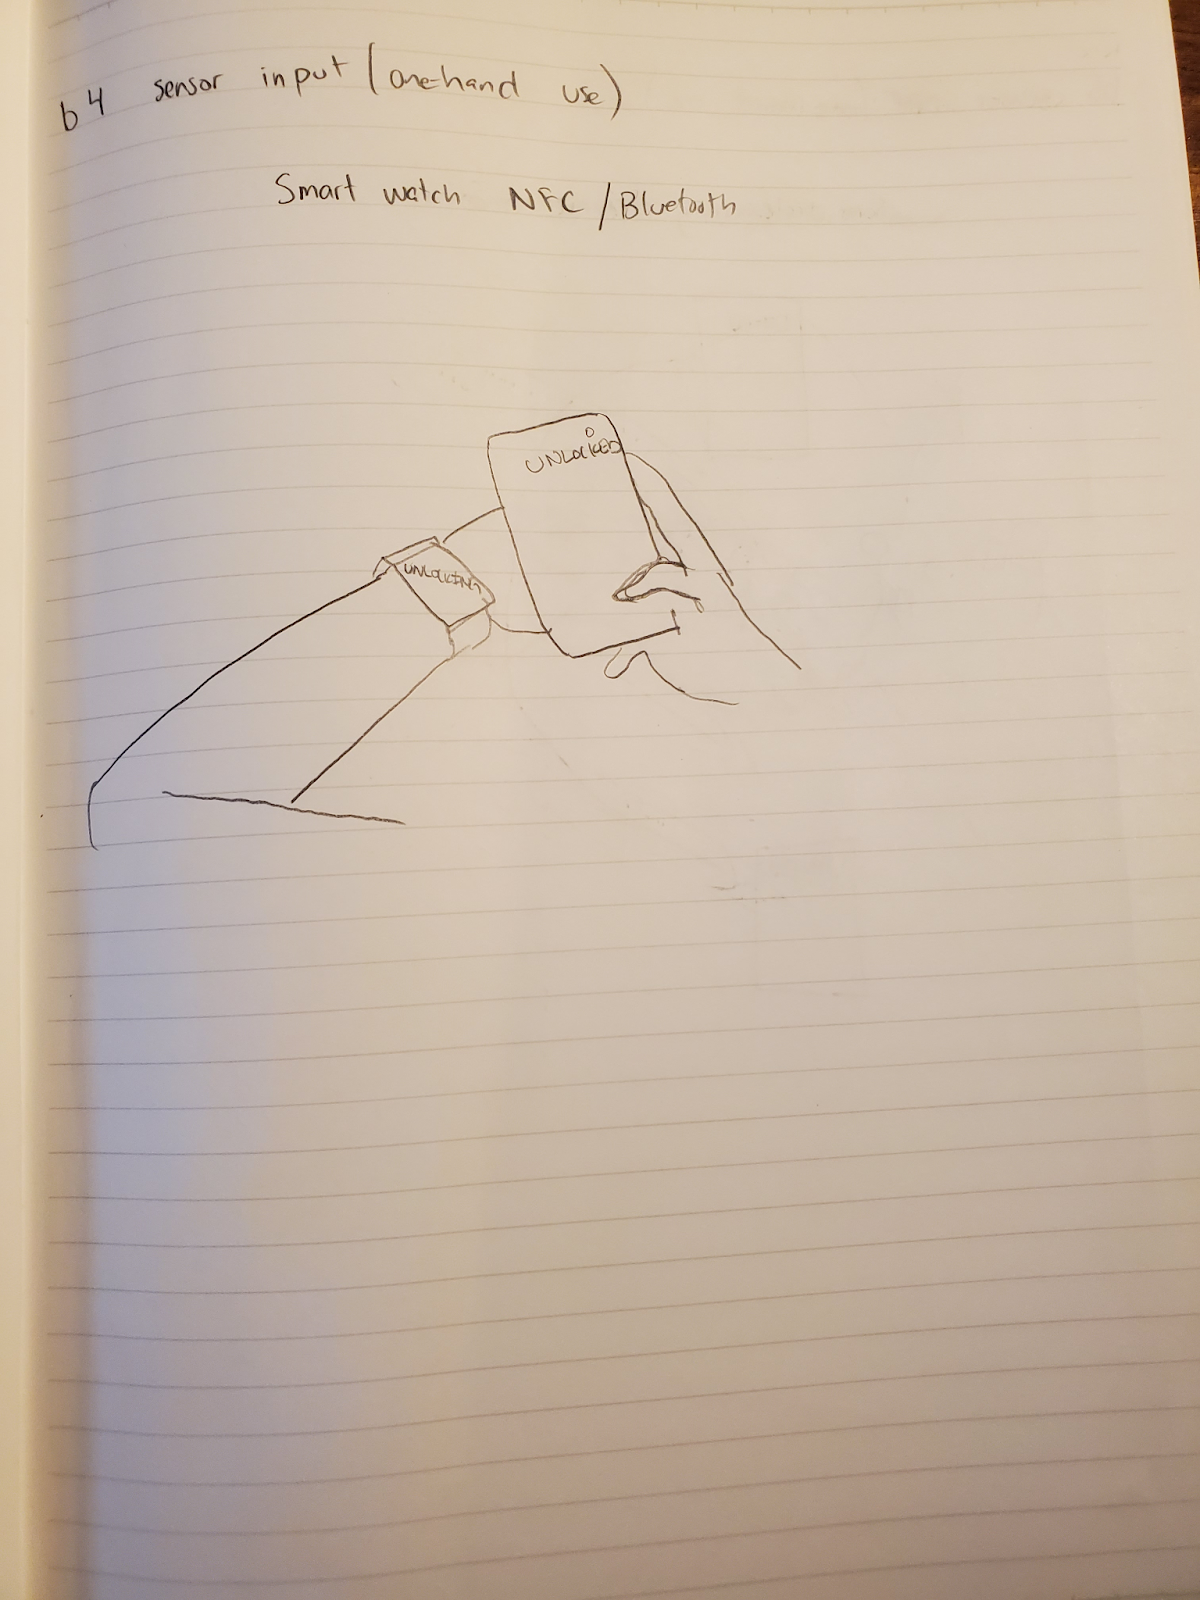 b4 sensor input (one-hand use)
Smart watch NFC/Bluetooth
UNLOCKED
UNLOCKING